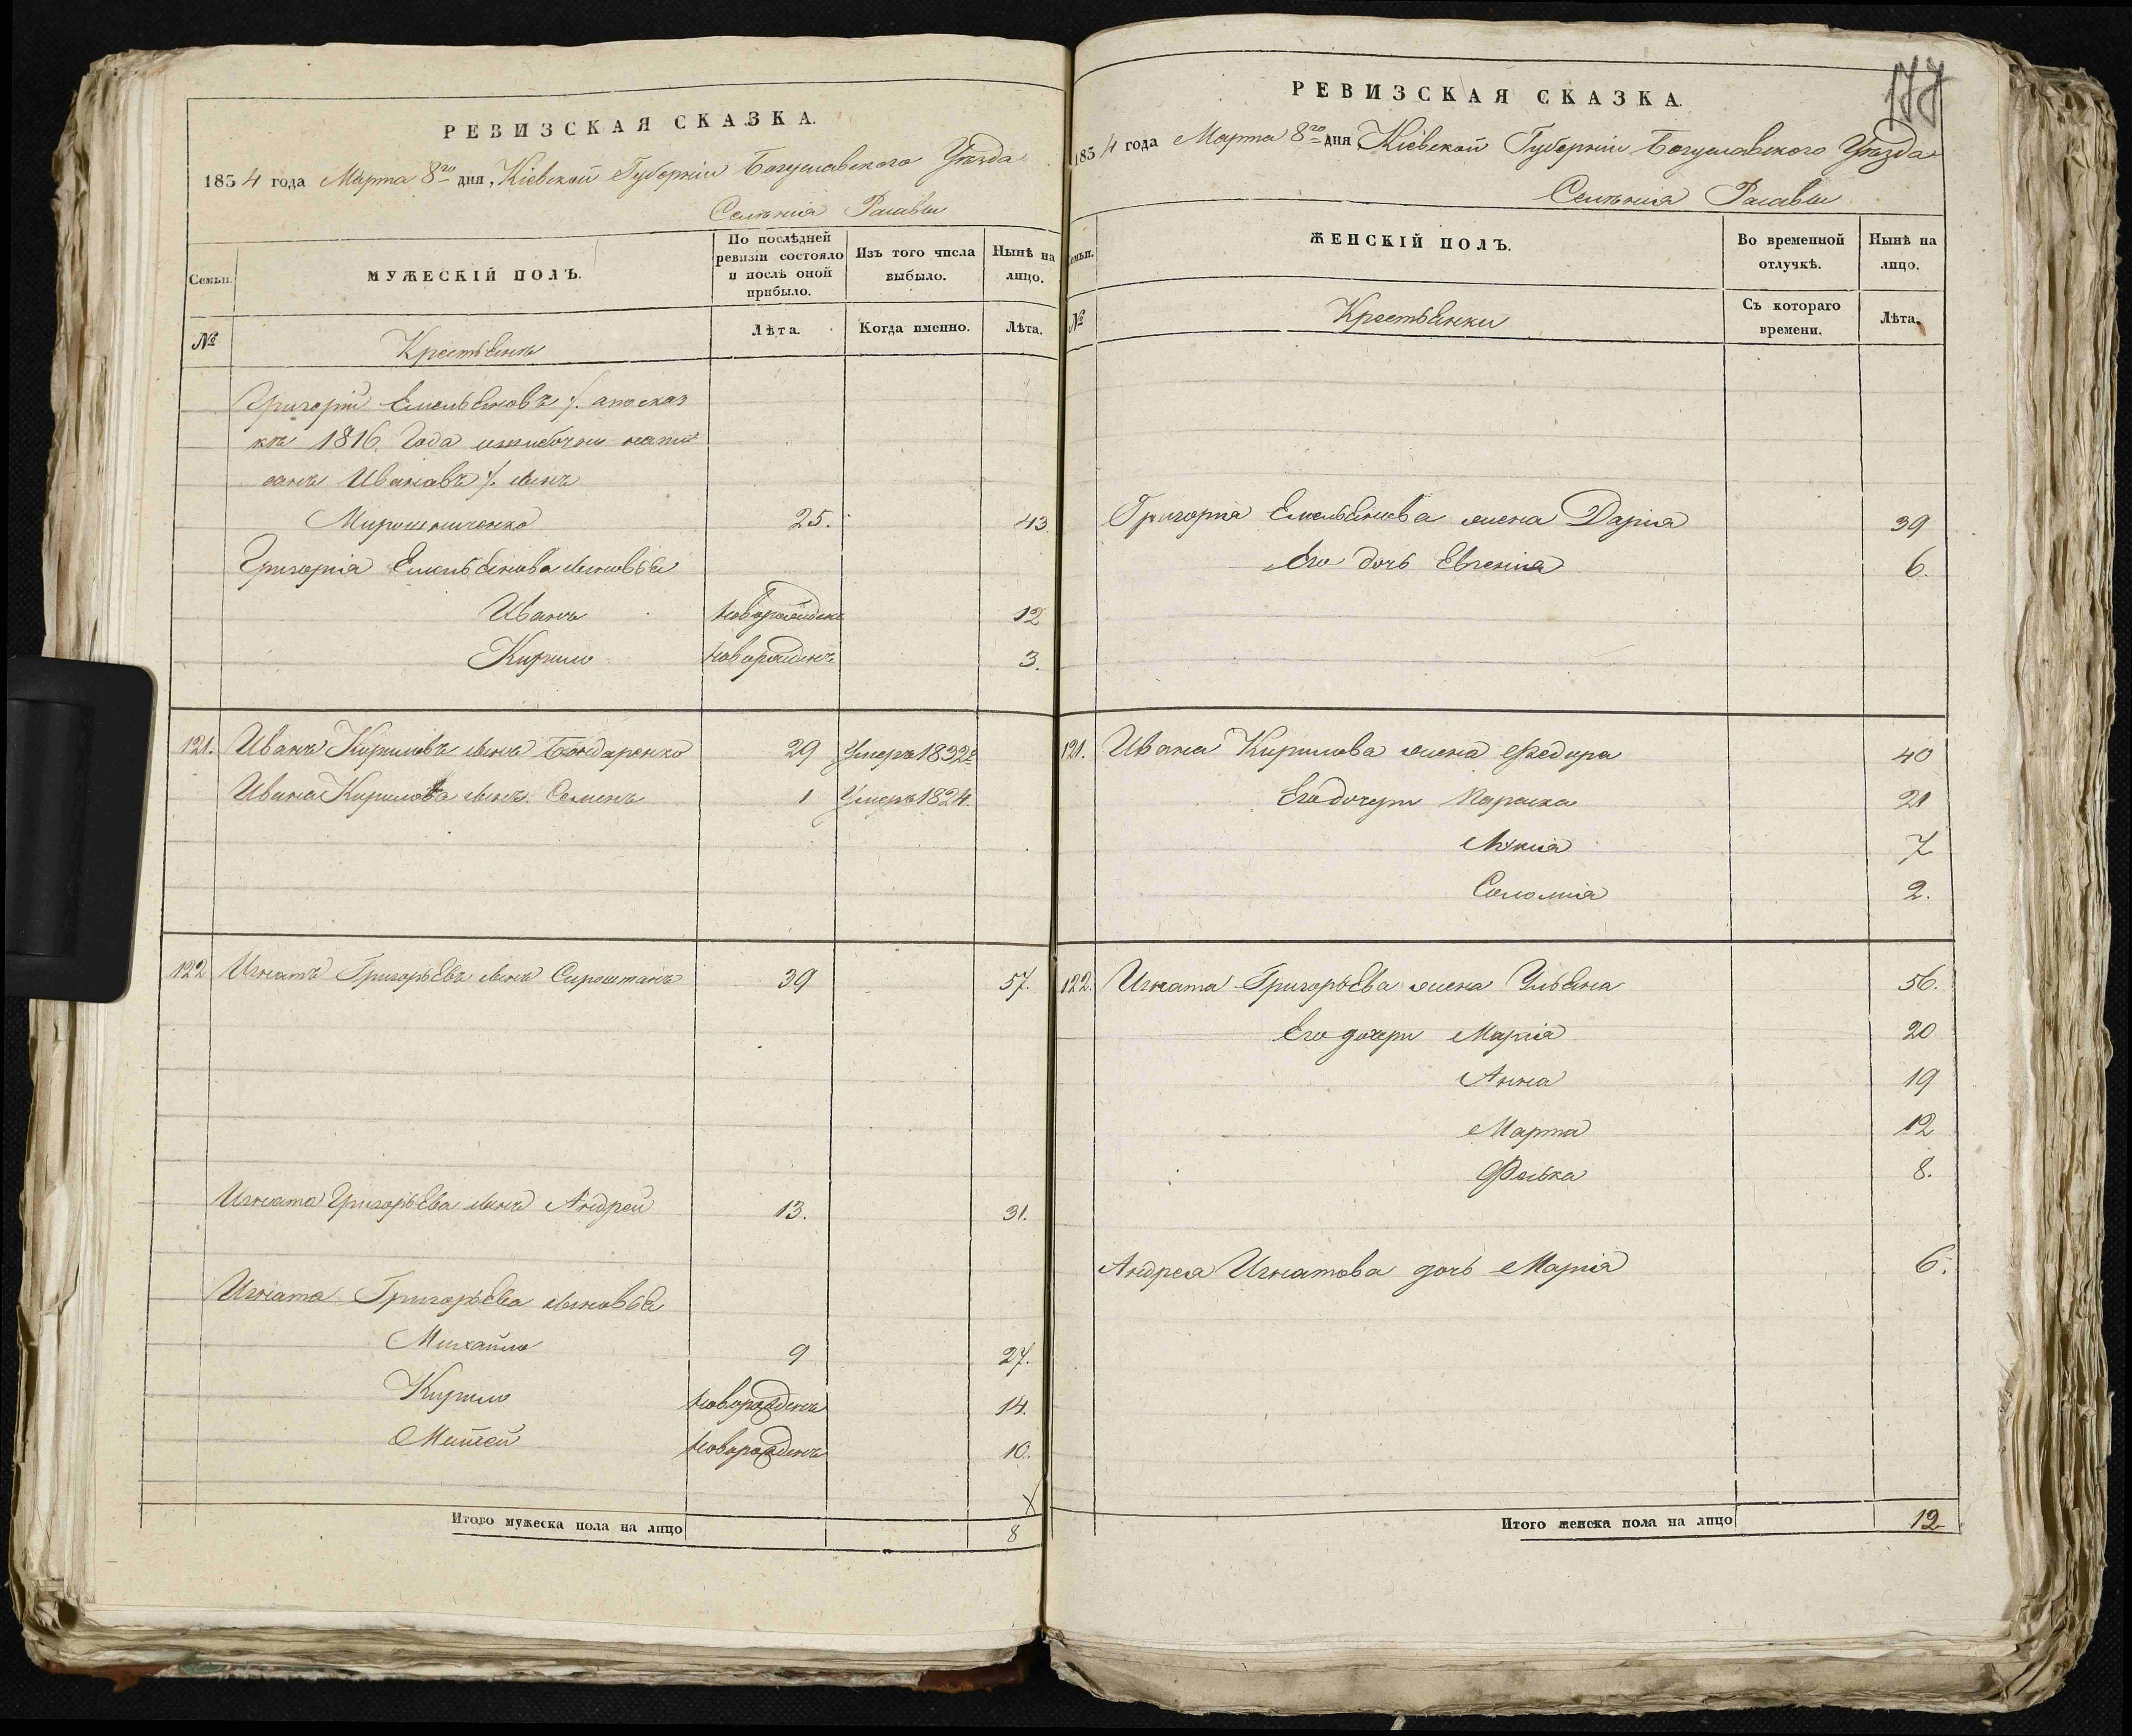 РЕВИЗСКАЯ СКАЗКА.
1834 года Марта 8го дня, Кіевской Губерніи Богуславскаго Уѣзда
Селѣнія Расавы
Семьи.
МУЖЕСКІЙ ПОЛЪ.
По послѣдней ревизіи состояло и послѣ оной прибыло.
Изъ того числа выбыло.
Нынѣ на лицо.
№
Крестьянъ
Лѣта.
Когда именно.
Лѣта.
Григорій Емельяновъ /. а по сказ
кѣ 1816. Года ошибочно напи
санъ Ивановъ /. сынъ
Мирошниченко 25. 43
Григорія Емельянова сыновья
Иванъ новорожденъ 12
Кирило новорожденъ 3.
121. Иванъ Кириловъ сынъ Бондаренко 29 Умеръ 1832г
Ивана Кирилова сынъ Семенъ 1 Умеръ 1824.
122 Игнатъ Григорьевъ сынъ Сироштанъ 39 57.
Игната Григорьева сынъ Андрей 13. 31.
Игната Григорьева сыновья
Михайло 9 27.
Кирило новорожденъ 14.
новорожденъ 10.
Итого мужеска пола на лицо 8
177
РЕВИЗСКАЯ СКАЗКА.
1834 года Марта 8го дня, Кіевской Губерніи Богуславскаго Уѣзда
Селѣнія Расавы
Семьи.
ЖЕНСКІЙ ПОЛЪ.
Во временной отлучкѣ.
Нынѣ на лицо.
№
Крестьянки
Съ котораго времени.
Лѣта.
Григорія Емельянова жена Дарія 39
Его дочь Евгенія 6.
121. Ивана Кирилова жена Федора 40
Его дочери Параска 21
7
Соломія 2.
122. Игната Григорьева жена Ульяна 56.
Его дочери Марія 20
Анна 19
Марта 12
Феська 8.
Андрея Игнатова дочь Марія 6.
Итого женска пола на лицо 12